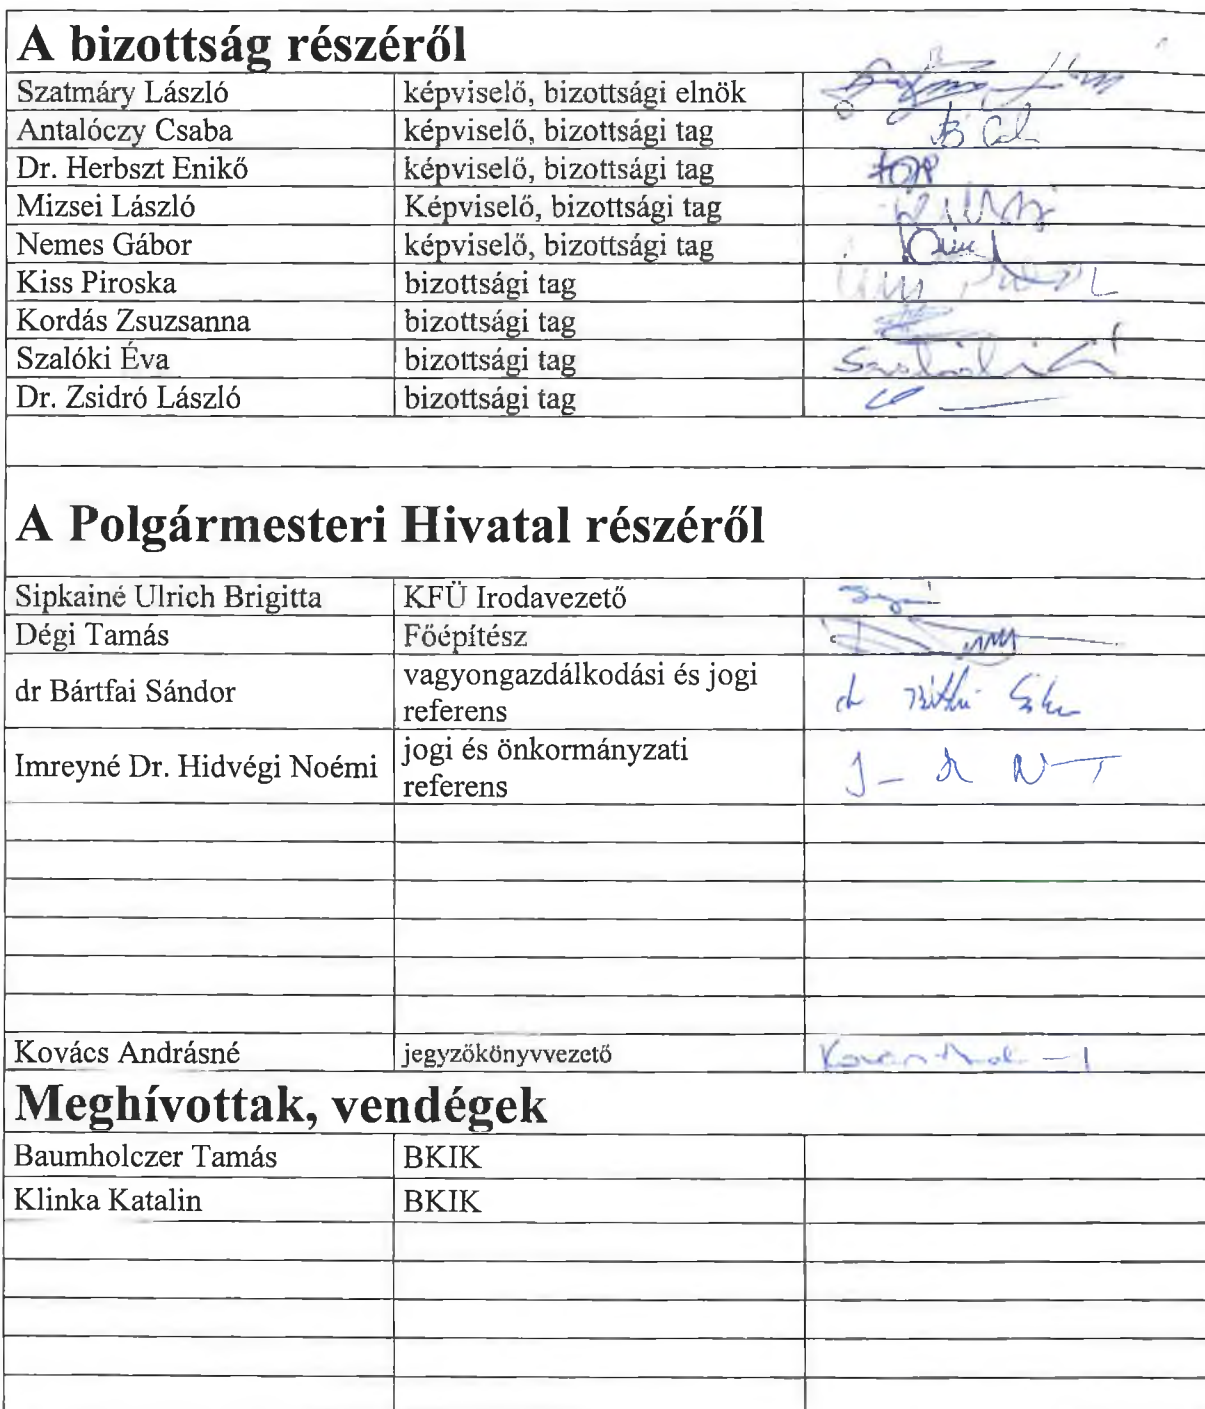 A bizottság részéről
Szatmáry László képviselő, bizottsági elnök
Antalóczy Csaba képviselő, bizottsági tag
Dr. Herbszt Enikő képviselő, bizottsági tag
Mizsei László Képviselő, bizottsági tag
Nemes Gábor képviselő, bizottsági tag
Kiss Piroska bizottsági tag
Kordás Zsuzsanna bizottsági tag
Szalóki Éva bizottsági tag
Dr. Zsidró László bizottsági tag
A Polgármesteri Hivatal részéről
Sipkainé Ulrich Brigitta KFÜ Irodavezető
Dégi Tamás Főépítész
dr Bártfai Sándor vagyongazdálkodási és jogi
referens
Imreyné Dr. Hidvégi Noémi jogi és önkormányzati
referens
Kovács Andrásné jegyzőkönyvvezető
Meghívottak, vendégek
Baumholczer Tamás BKIK
Klinka Katalin BKIK